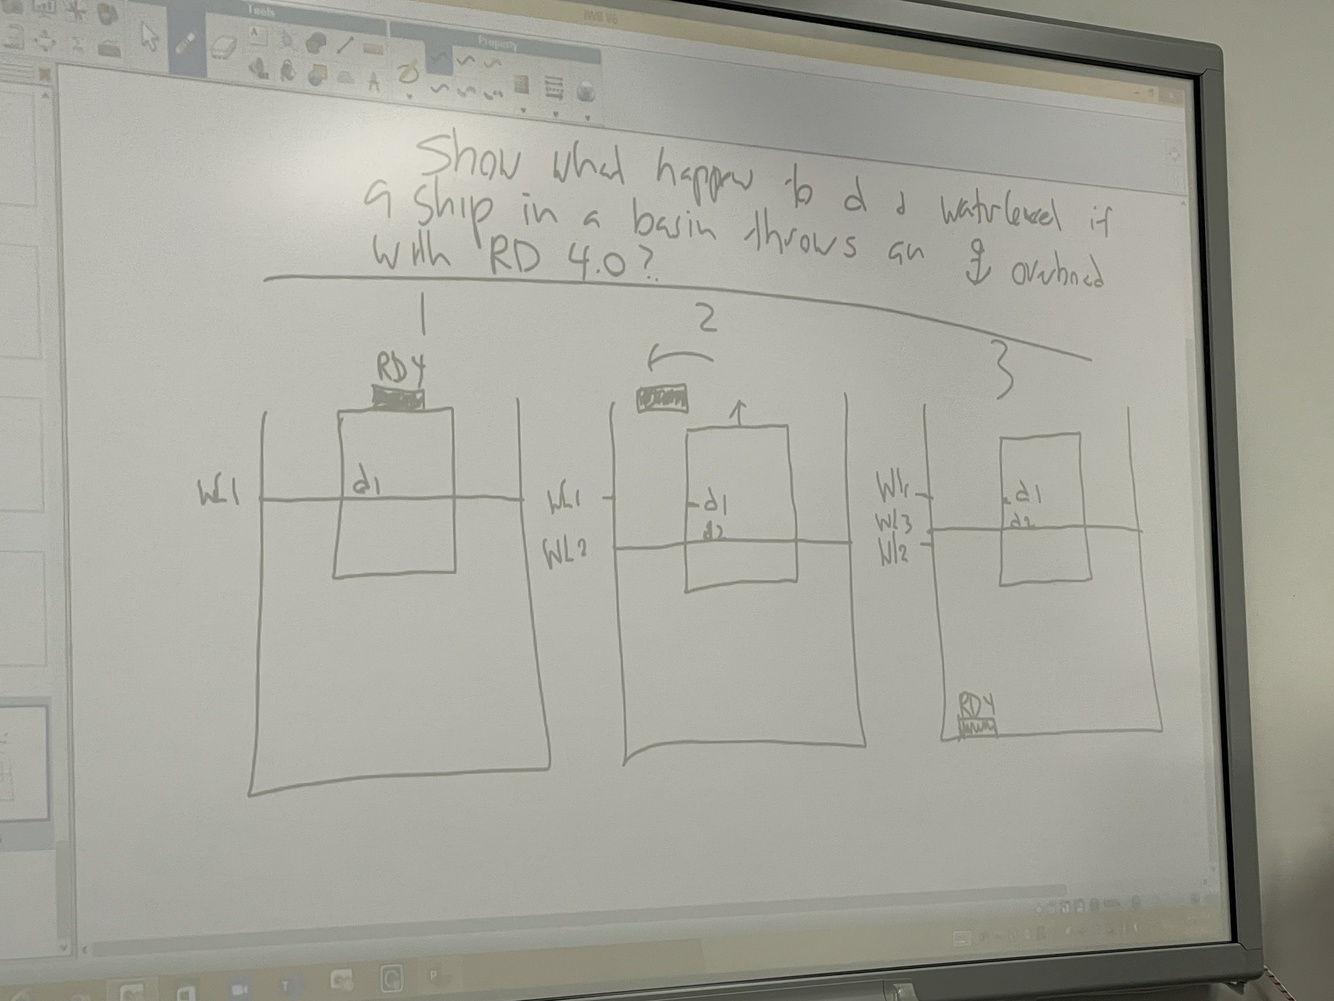 Tools
Property
Show what happen to d & waterlevel if
a ship in a basin throws an ⚓ overboad
with RD 4.0?
1
2
3
RD4
WL1
d1
WL1
WL2
d1
d2
WL1
WL3
WL2
d1
d2
RD4